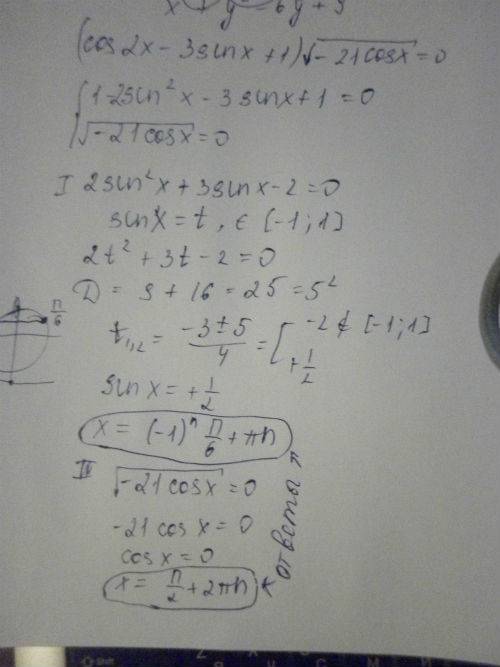 x + y = 6y + 9
(cos2x - 3sinx + 1)√-21cosx = 0
{ 1-2sin²x - 3sinx + 1 = 0
√-21cosx = 0
I 2sin²x + 3sinx - 2 = 0
sinx = t, ∈ [-1; 1]
2t² + 3t - 2 = 0
D = 9 + 16 = 25 = 5²
π/6
t₁,₂ = (-3±5)/4 = [ -2 ∉ [-1; 1]
+1/2
sinx = +1/2
x = (-1)ⁿ π/6 + πn
II √-21cosx = 0
-21cosx = 0
cosx = 0
x = π/2 + 2πn
ответы